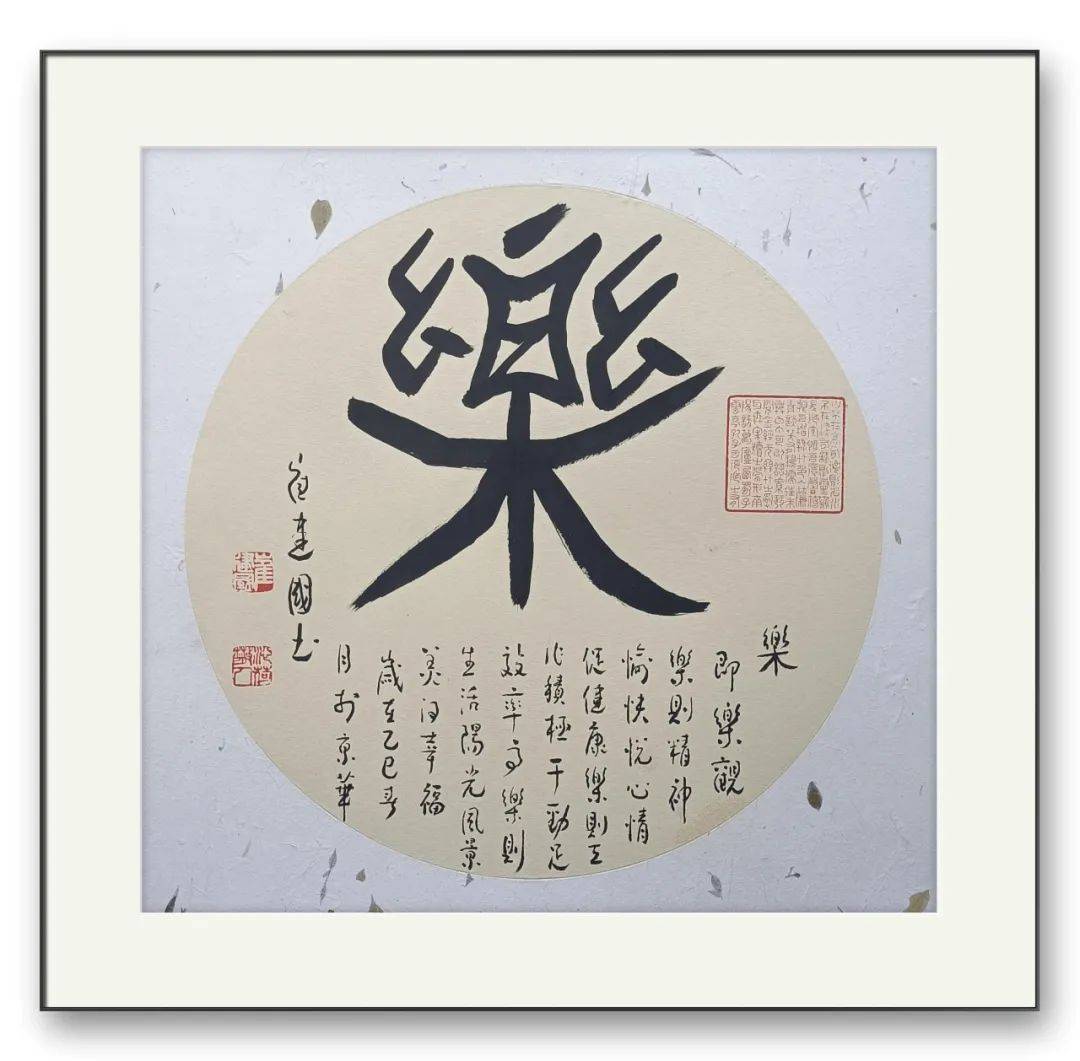 樂
樂
即樂觀
樂則精神
愉快悅心情
促健康樂則工
作積極干勁足
效率高樂則
生活陽光風景
美幸福
歲在乙巳春
月於京華
崔建國書
崔建國